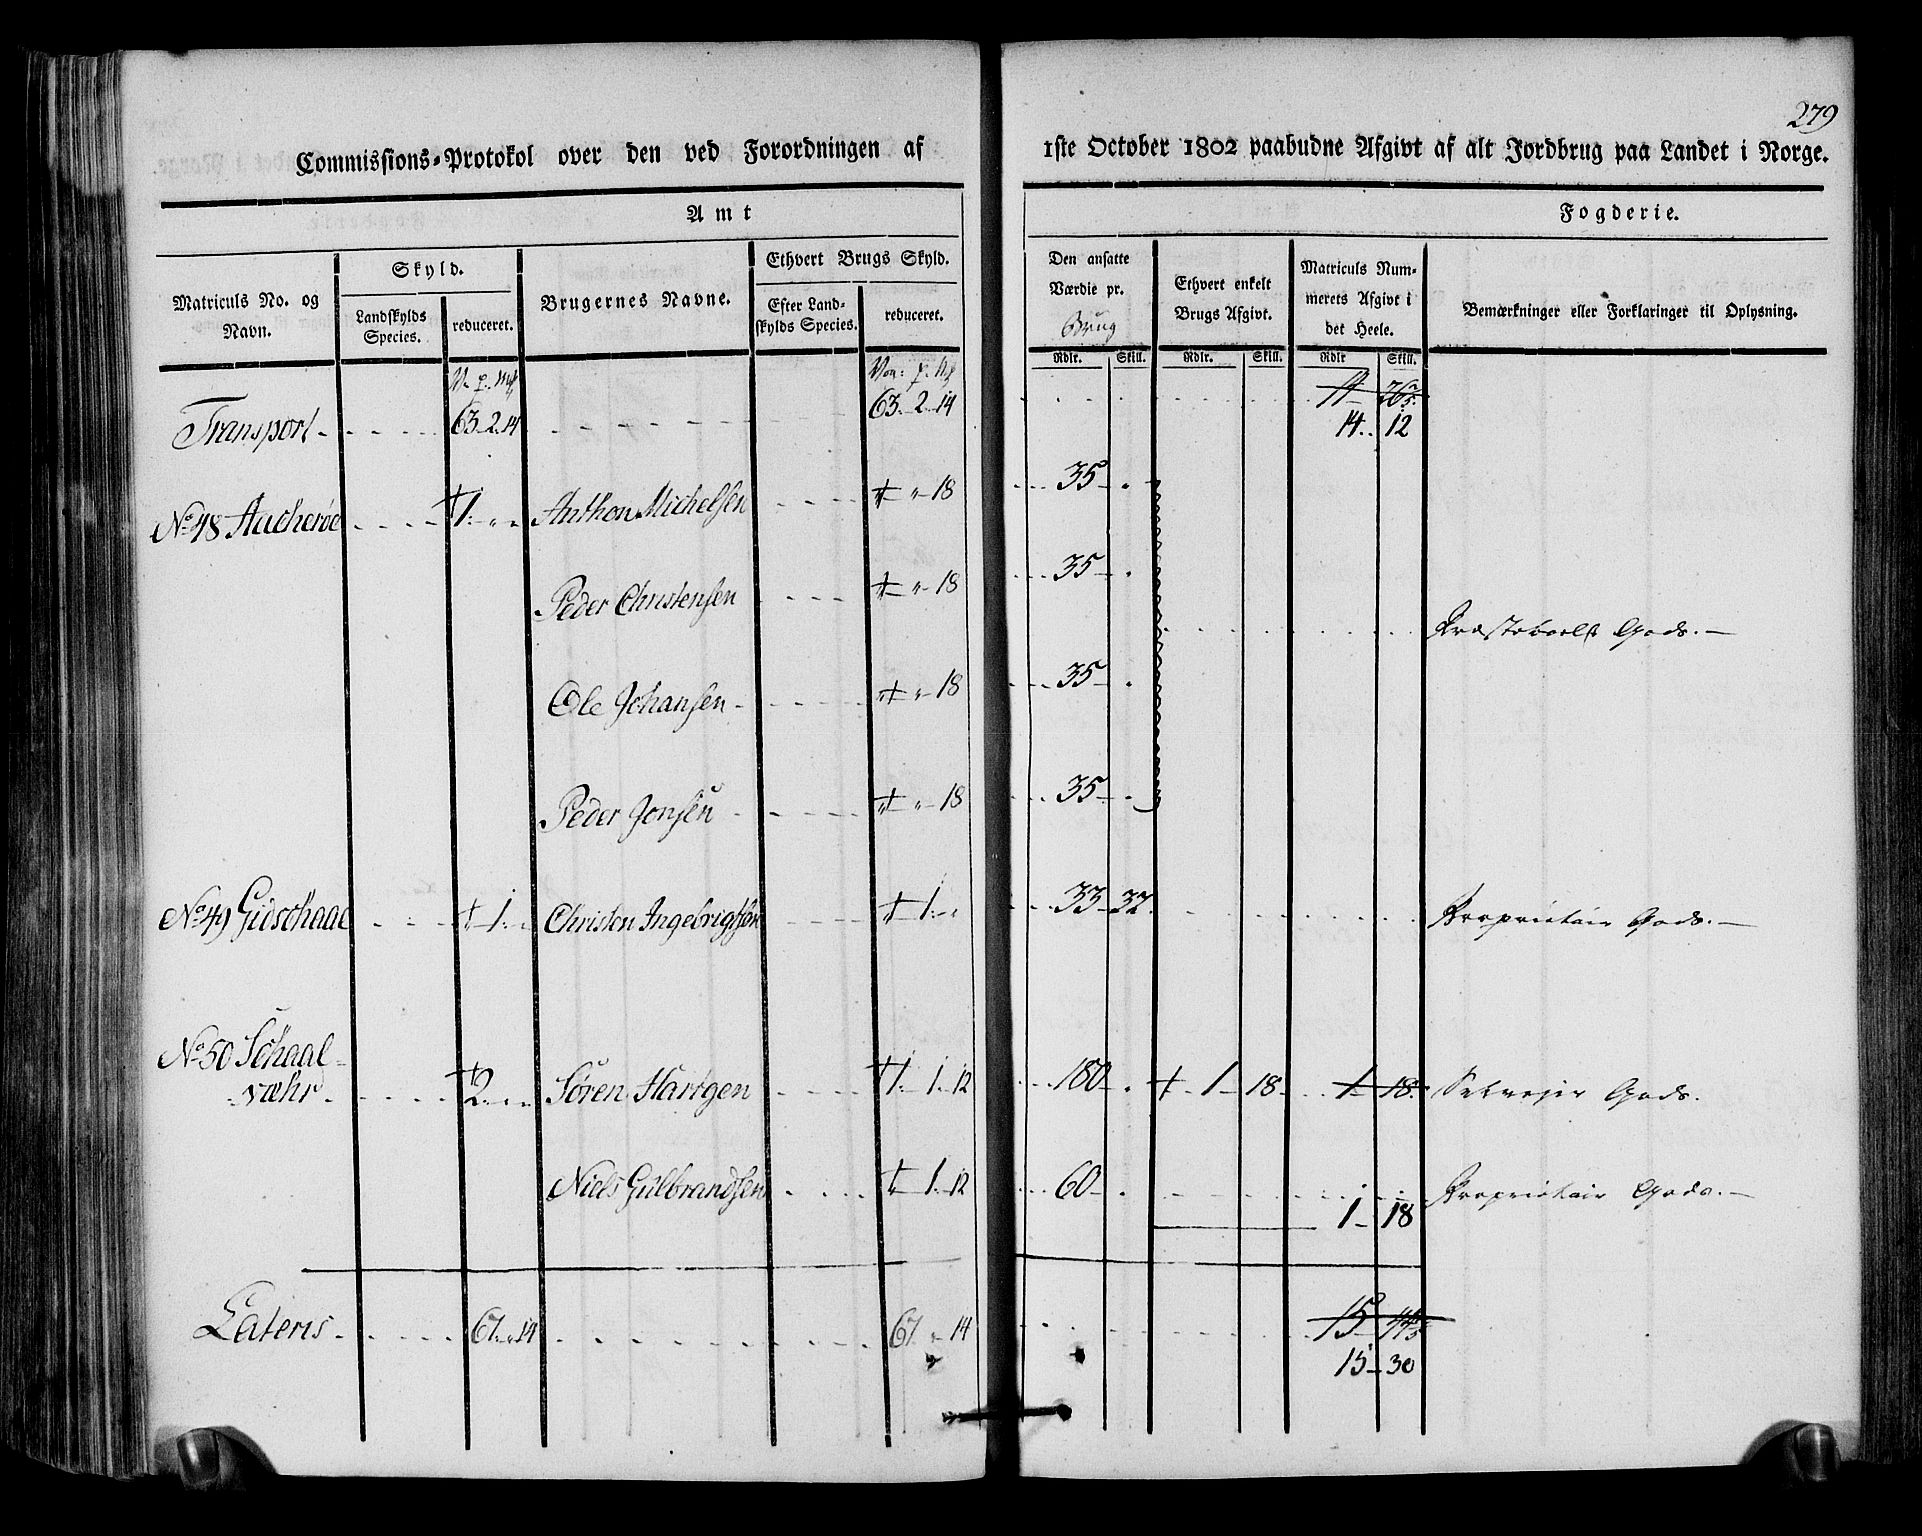 279
Commissions-Protokol over den ved Forordningen af 1ste October 1802 paabudne Afgivt af alt Jordbrug paa Landet i Norge.
Amt Fogderie.
Matriculs No. og Navn.
Skyld.
Landskylds Species.
reduceret.
Brugernes Navne.
Ethvert Brugs Skyld.
Efter Landskylds Species.
reduceret.
Den ansatte Værdie pr. Brug
Rdlr. Skill.
Ethvert enkelt Brugs Afgivt.
Rdlr. Skill.
Matriculs Nummerets Afgivt i det Heele.
Rdlr Skill.
Bemærkninger eller Forklaringer til Oplysning.
Transport 63. 2. 14 63. 2. 14
14. 12
No 48 Aacherøe 1. Anthon Michelsen 18 35
Peder Christensen 18 35
Præsteboels Gods.
Ole Johansen 18 35
Peder Jonsen 18 35
No 49 Gidschaal 1. Christen Ingebrigtsen 1. 33 32. Proprietair Gods.
No 50 Schaal-
væhr 2. Søren Hartgen 1. 1. 12 180 1 18 1 18. Selvejer Gods.
Niels Gulbrandsen 1. 12 60 Proprietair Gods.
1 18
Lateris 67. 14 67. 14
15 30